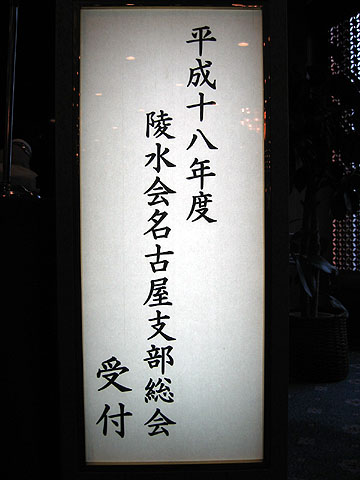 平成十八年度
陵水会名古屋支部総会
受付